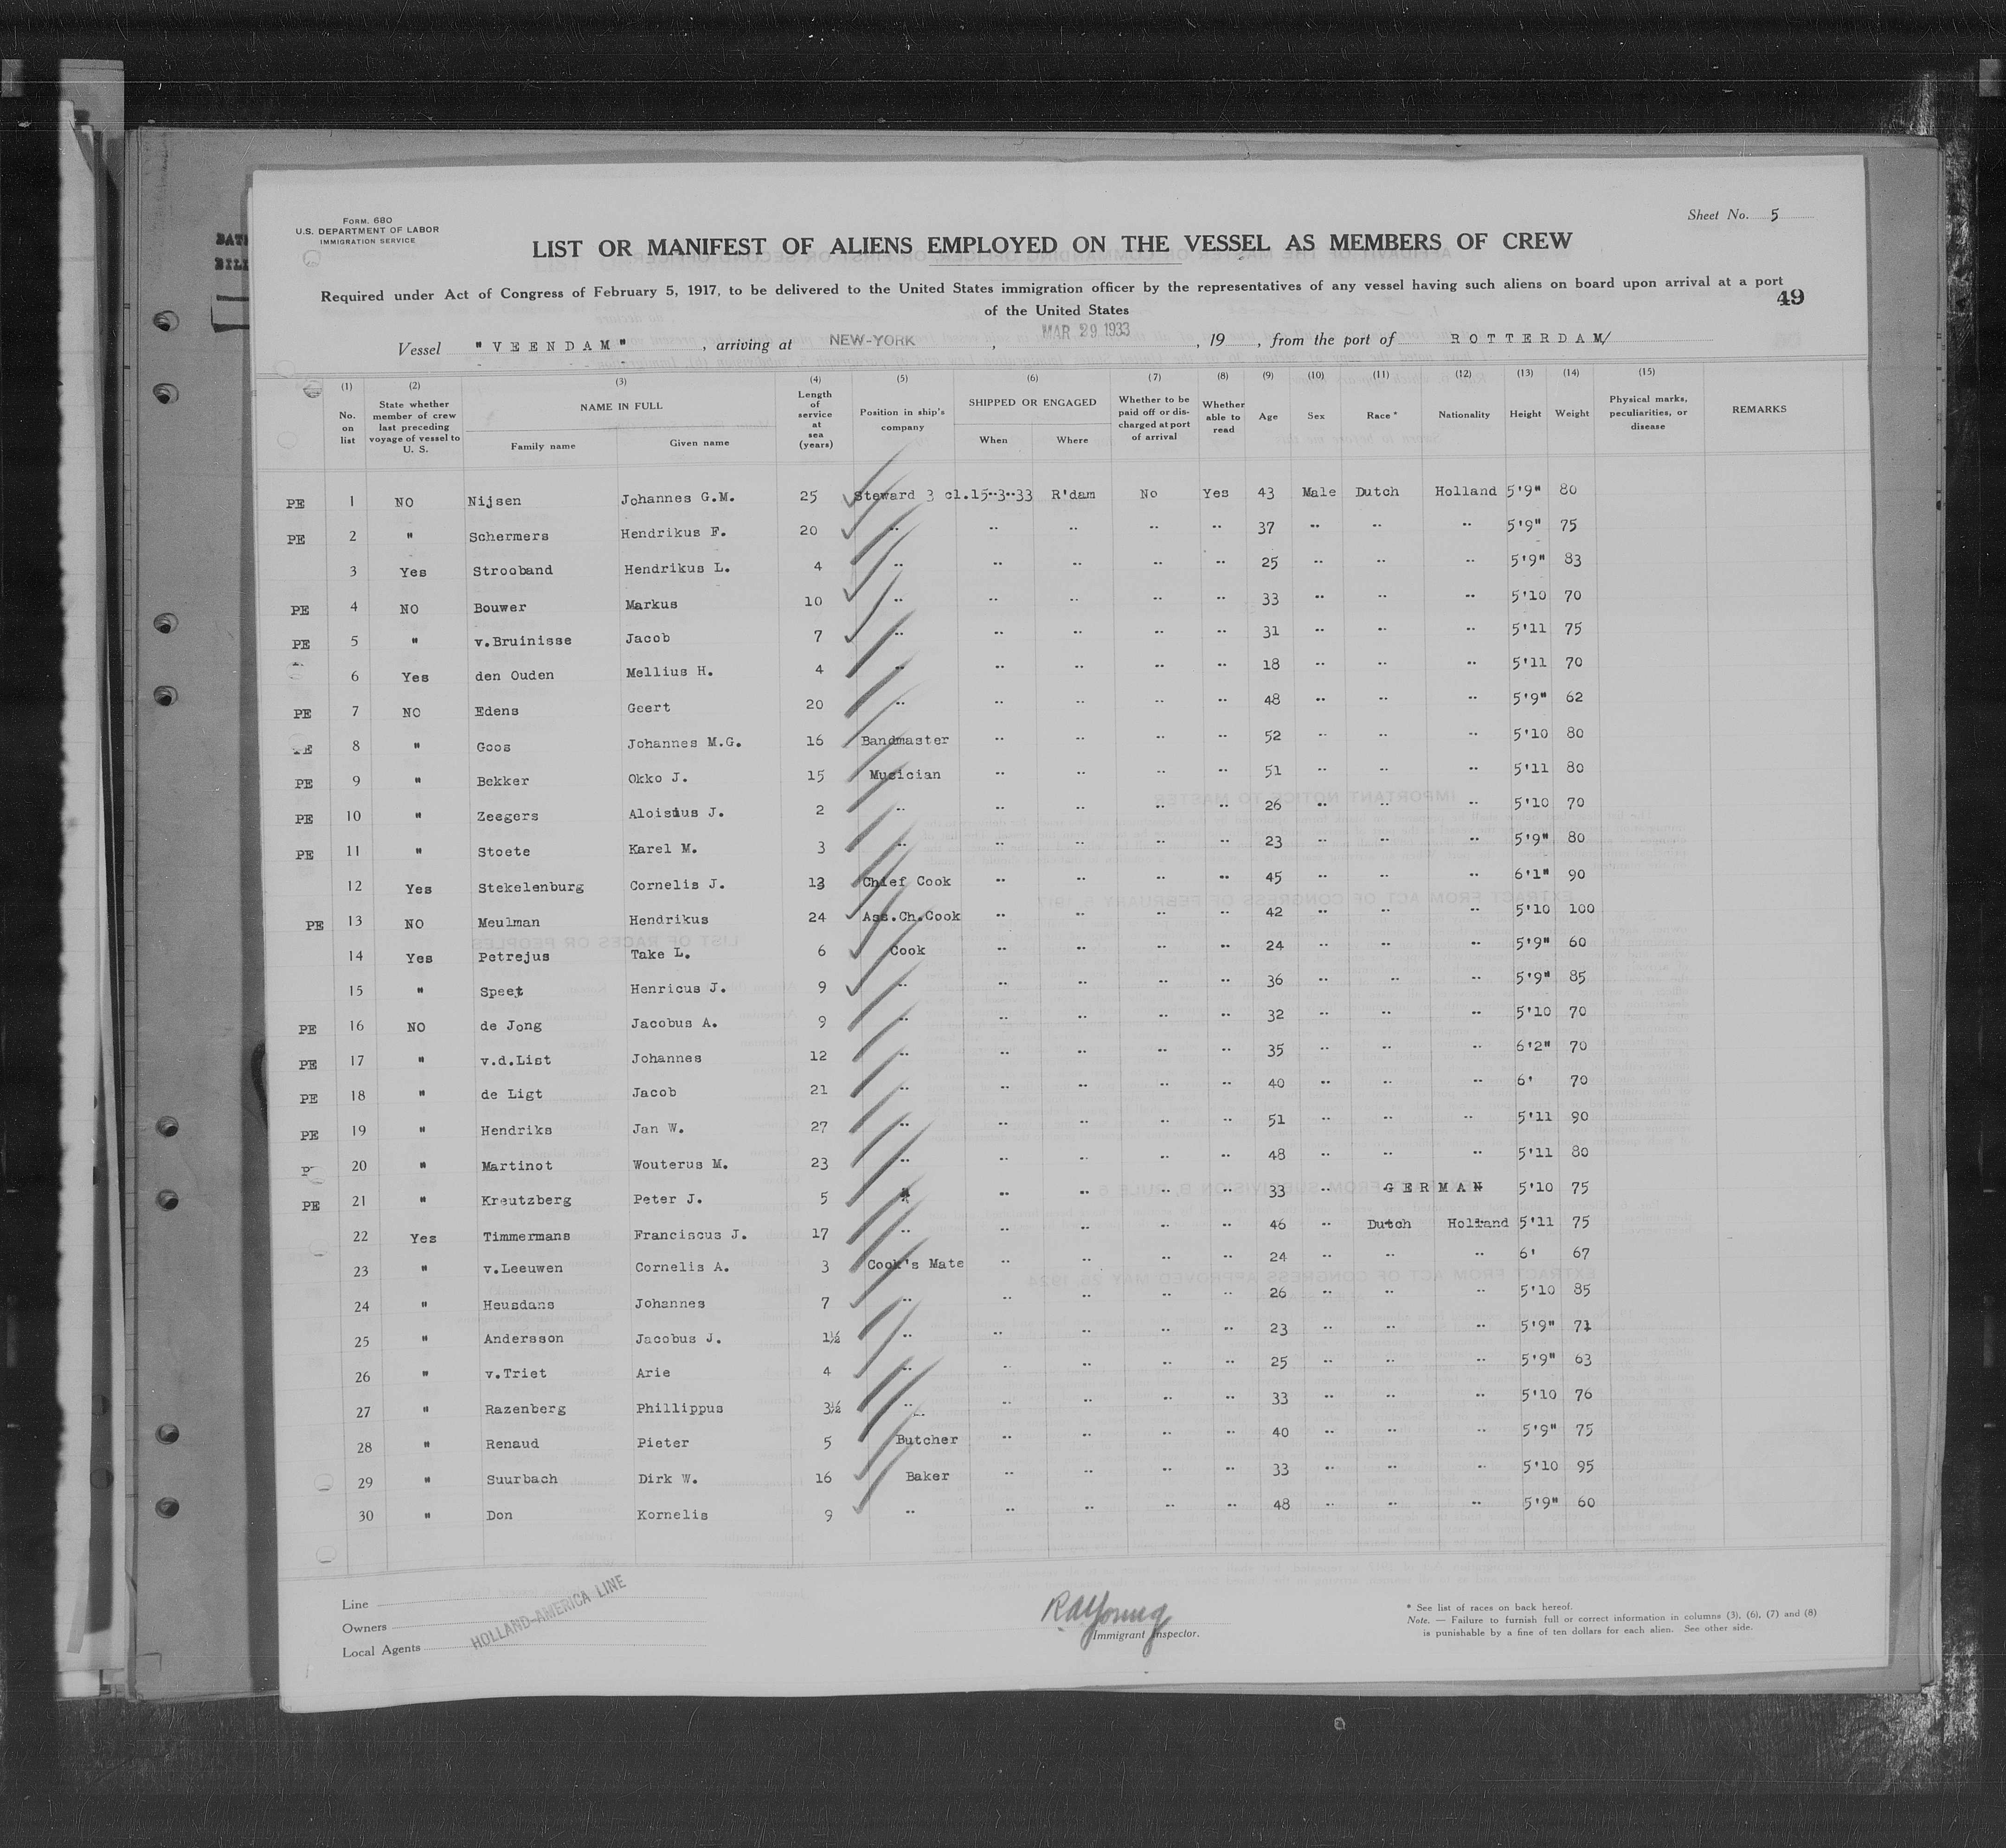 FORM. 680
U.S. DEPARTMENT OF LABOR
IMMIGRATION SERVICE
Sheet No. 5
LIST OR MANIFEST OF ALIENS EMPLOYED ON THE VESSEL AS MEMBERS OF CREW
Required under Act of Congress of February 5, 1917, to be delivered to the United States immigration officer by the representatives of any vessel having such aliens on board upon arrival at a port
of the United States
49
Vessel "VEENDAM", arriving at NEW-YORK, MAR 29 1933, 19 , from the port of ROTTERDAM/
(1) (2) (3) (4) (5) (6) (7) (8) (9) (10) (11) (12) (13) (14) (15)
No. on list State whether member of crew last preceding voyage of vessel to U. S. NAME IN FULL Family name Given name Length of service at sea (years) Position in ship's company SHIPPED OR ENGAGED When Where Whether to be paid off or discharged at port of arrival Whether able to read Age Sex Race * Nationality Height Weight Physical marks, peculiarities, or disease REMARKS
PE 1 NO Nijsen Johannes G.M. 25 Steward 3 cl. 15-3-33 R'dam No Yes 43 Male Dutch Holland 5'9" 80
PE 2 " Schermers Hendrikus F. 20 " " " " " 37 " " " 5'9" 75
3 Yes Strooband Hendrikus L. 4 " " " " " 25 " " " 5'9" 83
PE 4 NO Bouwer Markus 10 " " " " " 33 " " " 5'10 70
PE 5 " v.Bruinisse Jacob 7 " " " " " 31 " " " 5'11 75
6 Yes den Ouden Mellius H. 4 " " " " " 18 " " " 5'11 70
PE 7 NO Edens Geert 20 " " " " " 48 " " " 5'9" 62
PE 8 " Goos Johannes M.G. 16 Bandmaster " " " " 52 " " " 5'10 80
PE 9 " Bekker Okko J. 15 Musician " " " " 51 " " " 5'11 80
PE 10 " Zeegers Aloisius J. 2 " " " " " 26 " " " 5'10 70
PE 11 " Stoete Karel M. 3 " " " " " 23 " " " 5'9" 80
12 Yes Stekelenburg Cornelis J. 13 Chief Cook " " " " 45 " " " 6'1" 90
PE 13 NO Meulman Hendrikus 24 Ass.Ch.Cook " " " " 42 " " " 5'10 100
14 Yes Petrejus Take L. 6 Cook " " " " 24 " " " 5'9" 60
15 " Speet Henricus J. 9 " " " " " 36 " " " 5'9" 85
PE 16 NO de Jong Jacobus A. 9 " " " " " 32 " " " 5'10 70
PE 17 " v.d.List Johannes 12 " " " " " 35 " " " 6'2" 70
PE 18 " de Ligt Jacob 21 " " " " " 40 " " " 6' 70
PE 19 " Hendriks Jan W. 27 " " " " " 51 " " " 5'11 90
20 " Martinot Wouterus M. 23 " " " " " 48 " " " 5'11 80
PE 21 " Kreutzberg Peter J. 5 " " " " " 33 " GERMAN 5'10 75
22 Yes Timmermans Franciscus J. 17 " " " " " 46 " Dutch Holland 5'11 75
23 " v.Leeuwen Cornelis A. 3 Cook's Mate " " " " 24 " " " 6' 67
24 " Heusdans Johannes 7 " " " " " 26 " " " 5'10 85
25 " Andersson Jacobus J. 1½ " " " " " 23 " " " 5'9" 71
26 " v.Triet Arie 4 " " " " " 25 " " " 5'9" 63
27 " Razenberg Phillippus 3½ " " " " " 33 " " " 5'10 76
28 " Renaud Pieter 5 Butcher " " " " 40 " " " 5'9" 75
29 " Suurbach Dirk W. 16 Baker " " " " 33 " " " 5'10 95
30 " Don Kornelis 9 " " " " " 48 " " " 5'9" 60
Line
Owners
Local Agents
HOLLAND-AMERICA LINE
R A Young
Immigrant Inspector.
* See list of races on back hereof.
Note. — Failure to furnish full or correct information in columns (3), (6), (7) and (8)
is punishable by a fine of ten dollars for each alien. See other side.